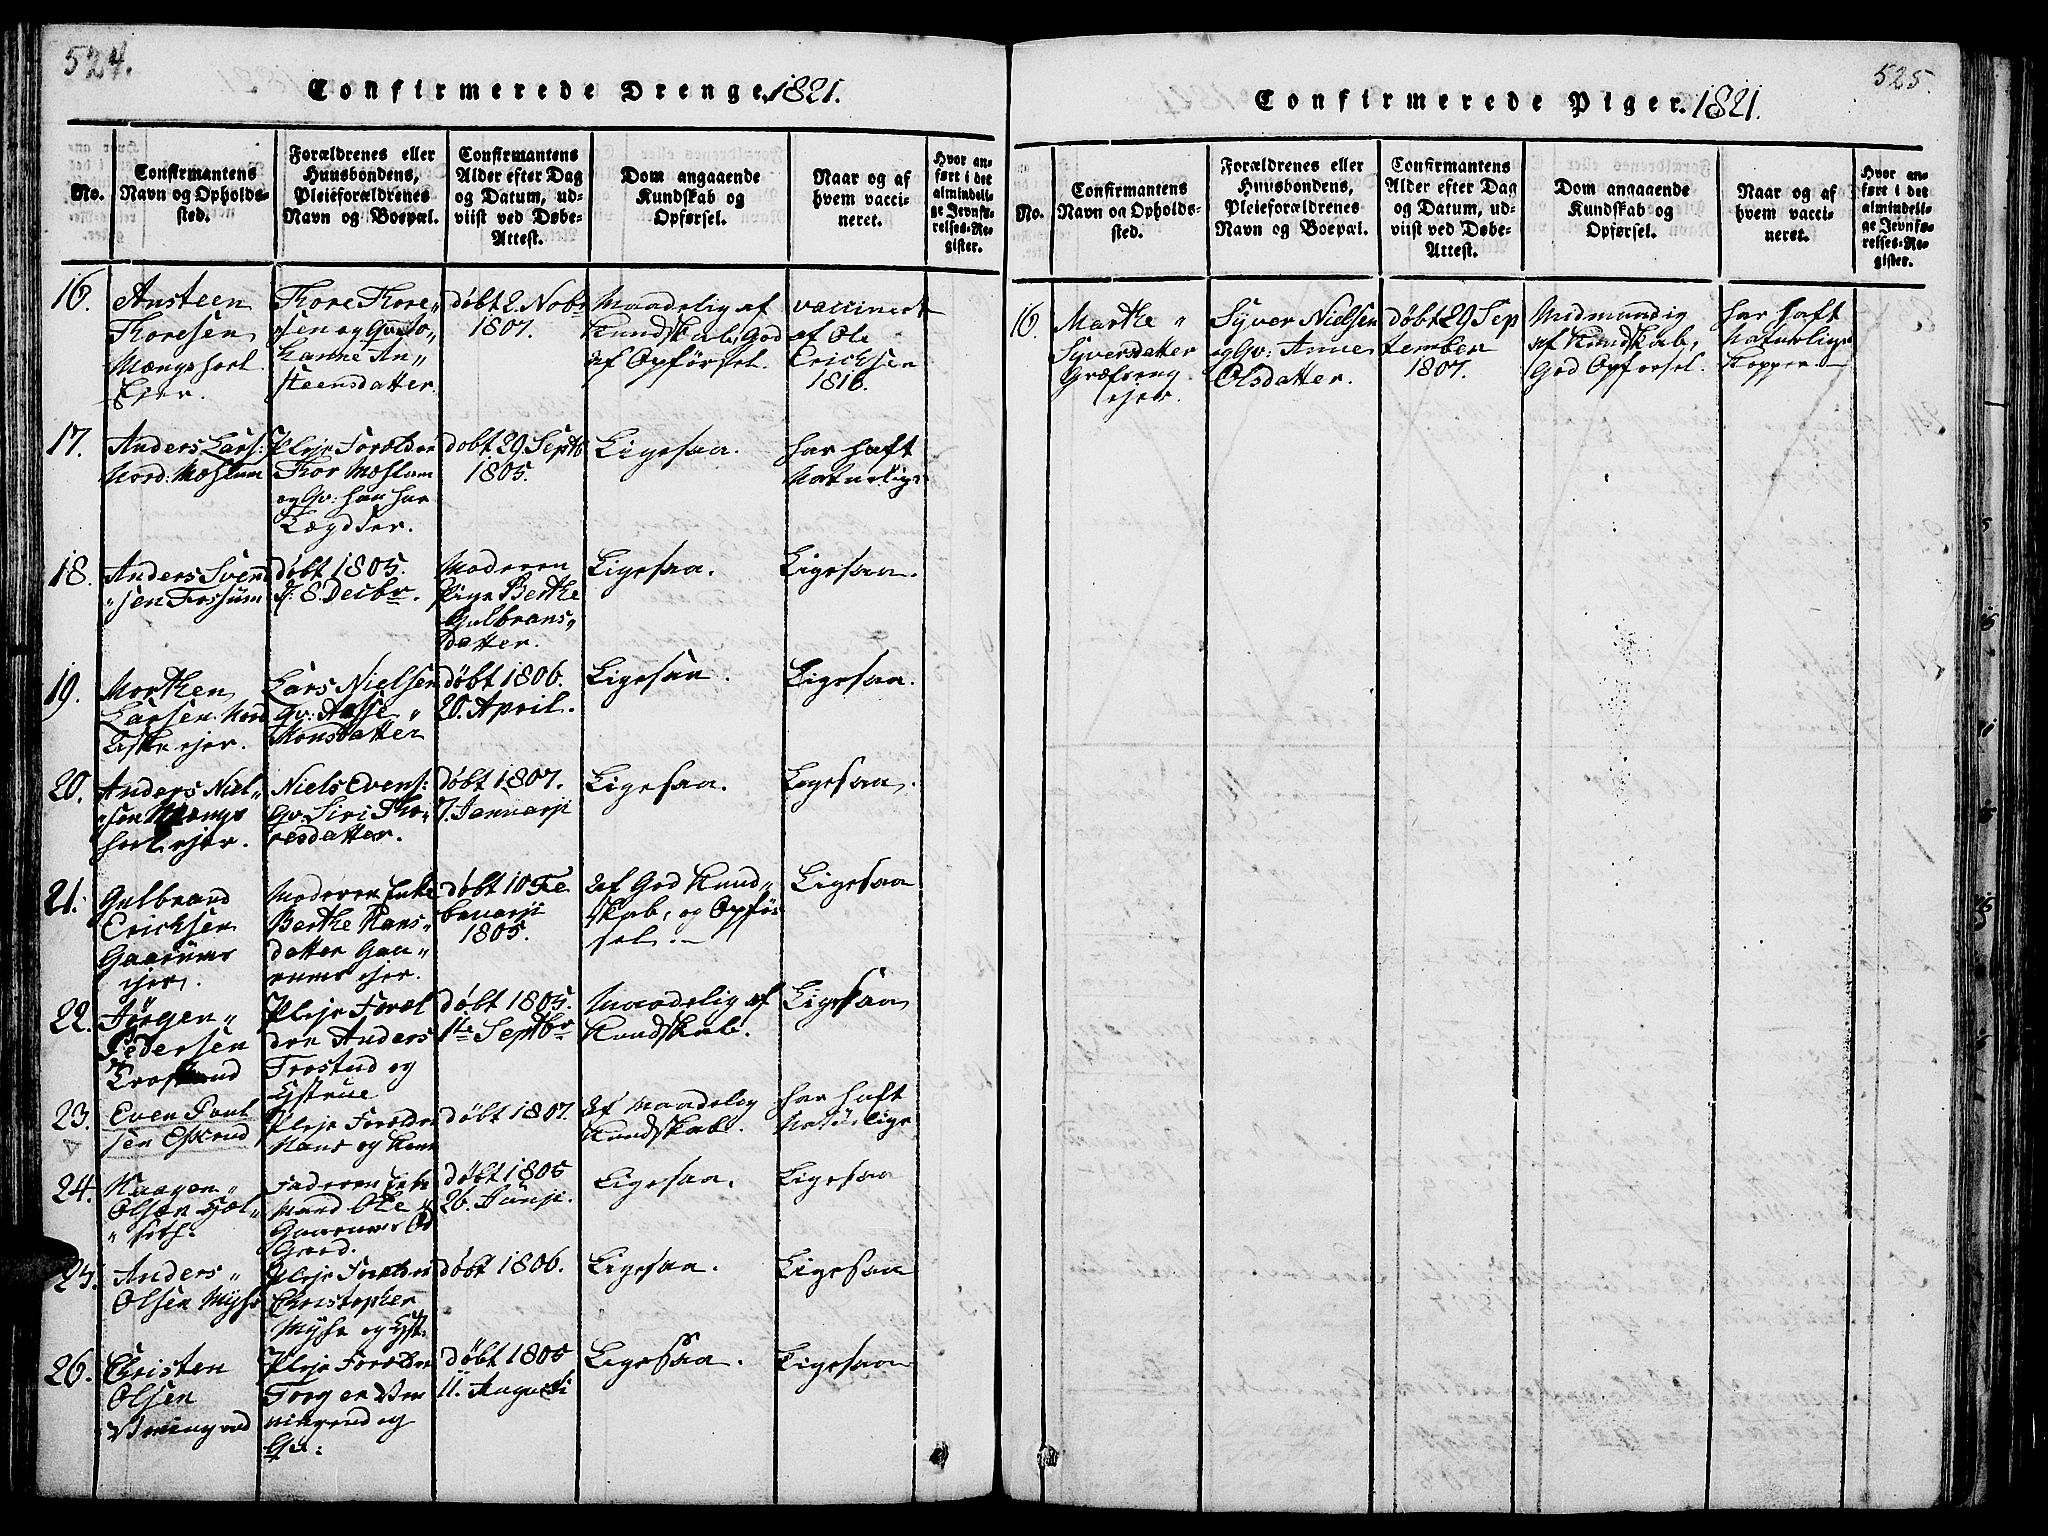 524.
Confirmerede Drenge. 1821.
No.
Confirmantens
Navn og Opholds-
sted.
Forældrenes eller
Huusbondens,
Pleieforældrenes
Navn og Boepæl.
Confirmantens
Alder efter Dag
og Datum, ud-
viist ved Døbe-
Attest.
Dom angaaende
Kundskab og
Opførsel.
Naar og af
hvem vacci-
neret.
Hvor an-
ført i det
almindeli-
ge Jevnfø-
relses-Re-
gister.
16.
Ansteen
Thoresen
Ejer.
Thore Thore„
sen og Gv: Jo„
hanne An„
steensdatter.
døbt 2. Nobr
1807.
Maadelig af
Kundskab, God
af Opførsel.
vaccineret
af Ole
Erichsen
1816.
17.
Anders Lars:
Nord: Moshum
Pleje Foreldre
Thor
og Gv: han har
døbt 29 Septb
1805.
Ligesaa.
har haft
Naturlige
18.
Anders Svend
„sen Fossum
døbt 1805.
d: 8. Decbr.
Moderen
Pige Berthe
Gulbrans„
datter.
Ligesaa.
Ligesaa.
19.
Morthen
Larsen Nord
ejer.
Lars Nielsen
Gv: Aasse „
Monsdatter
døbt 1806.
20. April.
Ligesaa.
Ligesaa.
20.
Anders Niel„
„sen
ejer.
Niels Evens:
Gv: Siri Tho„
resdatter.
døbt 1807.
7. Januarji
Ligesaa.
Ligesaa.
21.
Gulbrand
Erichsen
Gaarums
ejer.
Moderen Enke
Berthe Hans„
datter Gaa„
rums ejer.
døbt 10 Fe
bruarji
1805.
af God Kund„
skab, og Opfør
sel.
Ligesaa
22.
Jörgen „
Pedersen
Pleje Forel
dre Anders
Frostud og
Hystrue
døbt 1805.
1te Septbr
Maadelig af
Kundskab.
Ligesaa
23.
Even Poul
sen
Pleje Foreldre
Hans og
døbt 1807.
af Maadelig
Kundskab.
har haft
Naturlige
24.
Haagen „
Olsen
„ seth.
Faderen Enke
Mand Ole
Gaard.
døbt 1805
26. Junji.
Ligesaa.
Ligesaa
25.
Anders „
Olsen Myhre
Pleje Foreldre
Christopher
Myhre og Hyst:
døbt 1806.
Ligesaa.
Ligesaa
26.
Christen
Olsen
Pleje Foreldre
og
Gv:
døbt 1805
11. Augusti
Ligesaa.
Ligesaa
525.
Confirmerede Piger. 1821.
No.
Confirmantens
Navn og Opholds-
sted.
Forældrenes eller
Huusbondens,
Pleieforældrenes
Navn og Boepæl.
Confirmantens
Alder efter Dag
og Datum, ud-
viist ved Døbe-
Attest.
Dom angaaende
Kundskab og
Opførsel.
Naar og af
hvem vacci-
neret.
Hvor an-
ført i det
almindeli-
ge Jevnfø-
relses-Re-
gister.
16.
Marthe „
Syversdatter
Græfseng
ejer.
Syver Nielsen
og Gv: Anne
Olsdatter.
døbt 29 Sep
tember
1807.
Midmaadig
af Kundskab,
God Opførsel.
har haft
Naturlige
Kopper.